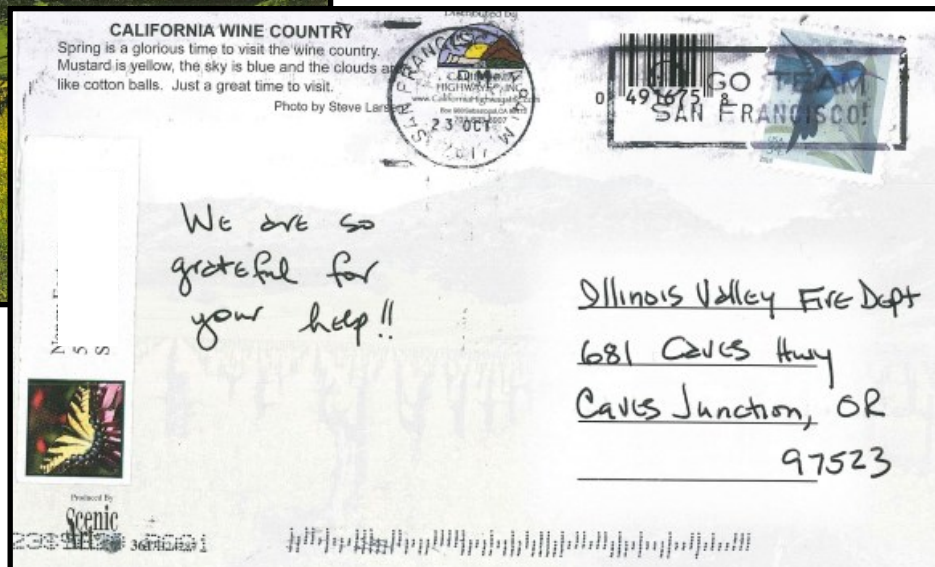 CALIFORNIA WINE COUNTRY
Spring is a glorious time to visit the wine country.
Mustard is yellow, the sky is blue and the clouds
like cotton balls. Just a great time to visit.
Photo by Steve
Distributed by
HIGHWAYS INC
23 OCT
0 491675 8
GO TEAM
SAN FRANCISCO!
USA
We are so
grateful for
your help!!
Illinois Valley Fire Dept
681 Caves Hwy
Caves Junction, OR
97523
5
S
Produced By
Scenic
Art